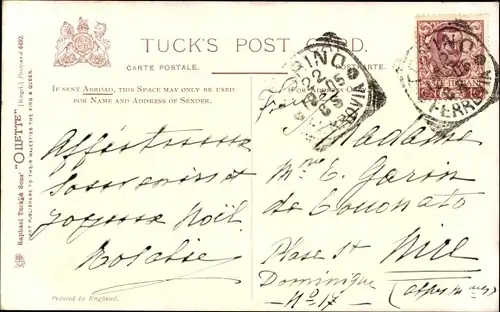 TUCK'S POST CARD.
CARTE POSTALE.
IF SENT ABROAD, THIS SPACE MAY ONLY BE USED
FOR NAME AND ADDRESS OF SENDER.
(FOR ADDRESS ONLY.)
Raphael Tuck & Sons' "OILETTE" [Regd.] Postcard 6492.
ART PUBLISHERS TO THEIR MAJESTIES THE KING & QUEEN.
TORINO
22
12-05
FERROVIA
TORINO
FERROVIA
Affectueux
Souvenirs et
Joyeux Noël
Madame
Mme C. Garin
de Cocconato
Place St
Dominique
No 17
Nice
(Alpes mmes)
Printed in England.